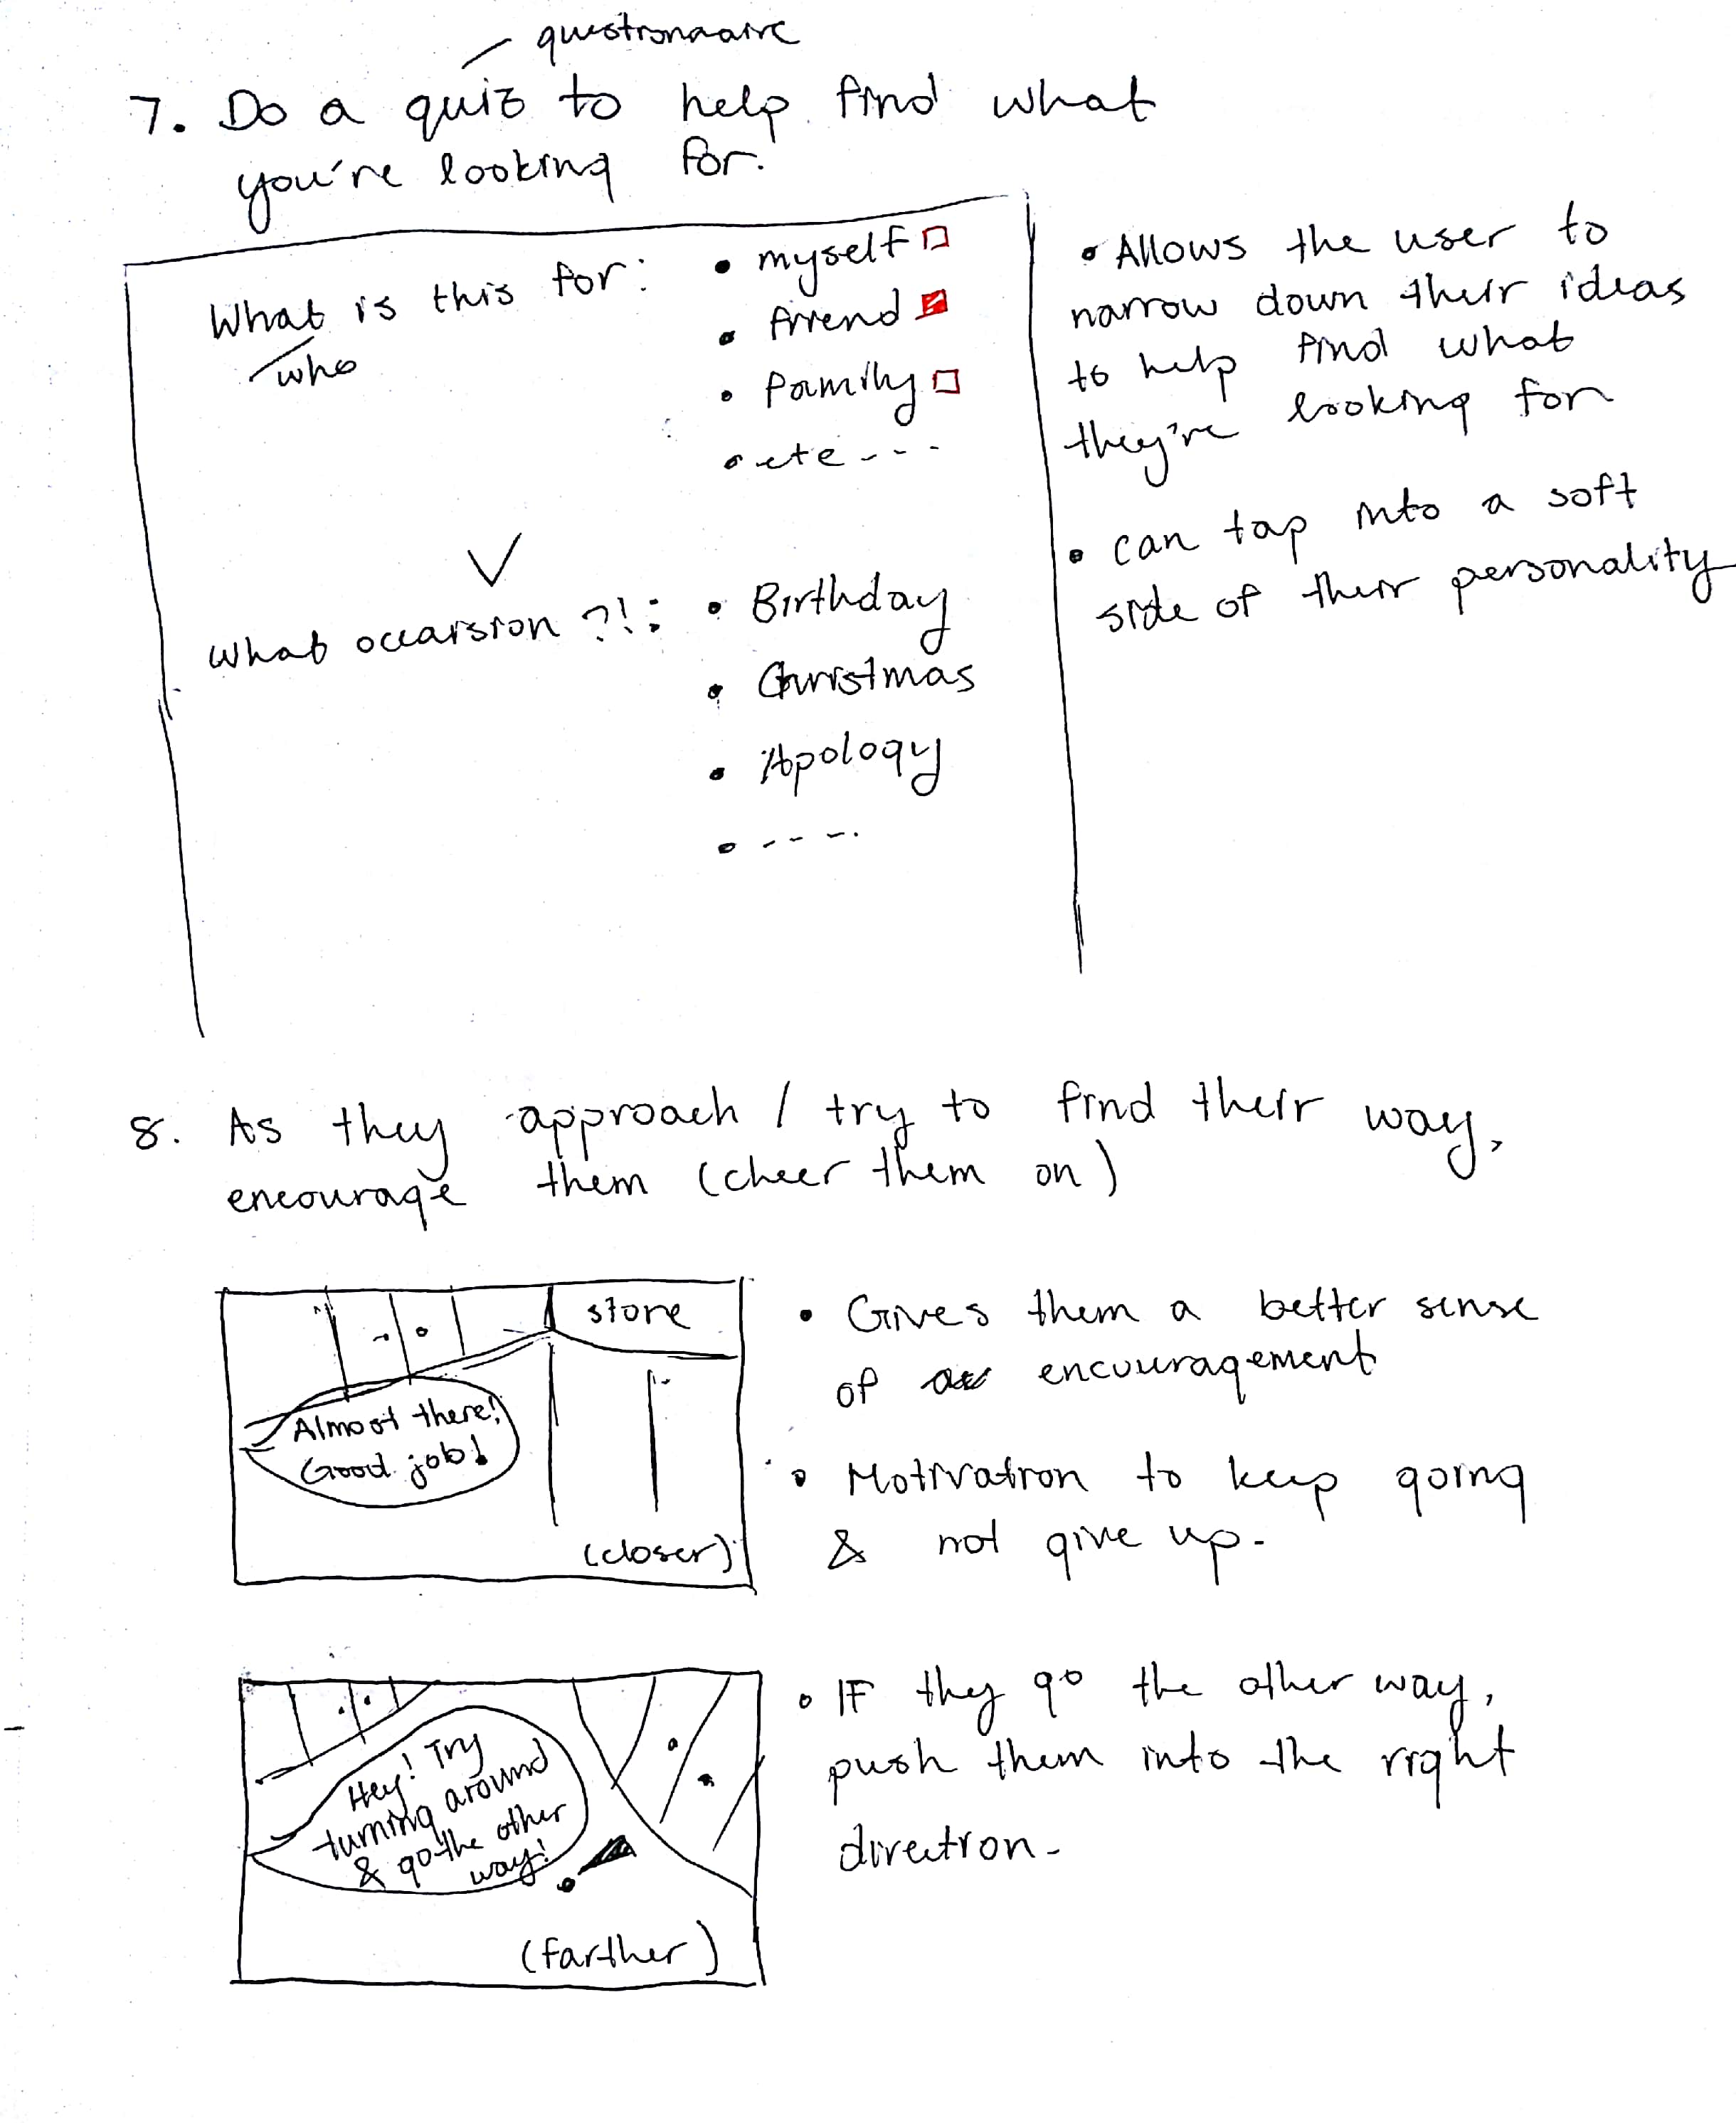 questionaaire
7. Do a quiz to help find what
you're looking for.
What is this for:
who
• myself
• friend
• family
• etc ---
What occarsion ?!:
• Birthday
• Christmas
• Apology
• ----.
• Allows the user to
narrow down their ideas
to help find what
they're looking for
• can tap into a soft
side of their personality
8. As they approach / try to find their way,
encourage them (cheer them on)
store
Almost there!
Good job!
(closer)
• Gives them a better sense
of encouragement
• Motivation to keep going
& not give up.
Hey! Try
turning around
& go the other
way!
(farther)
• IF they go the other way,
push them into the right
direction.